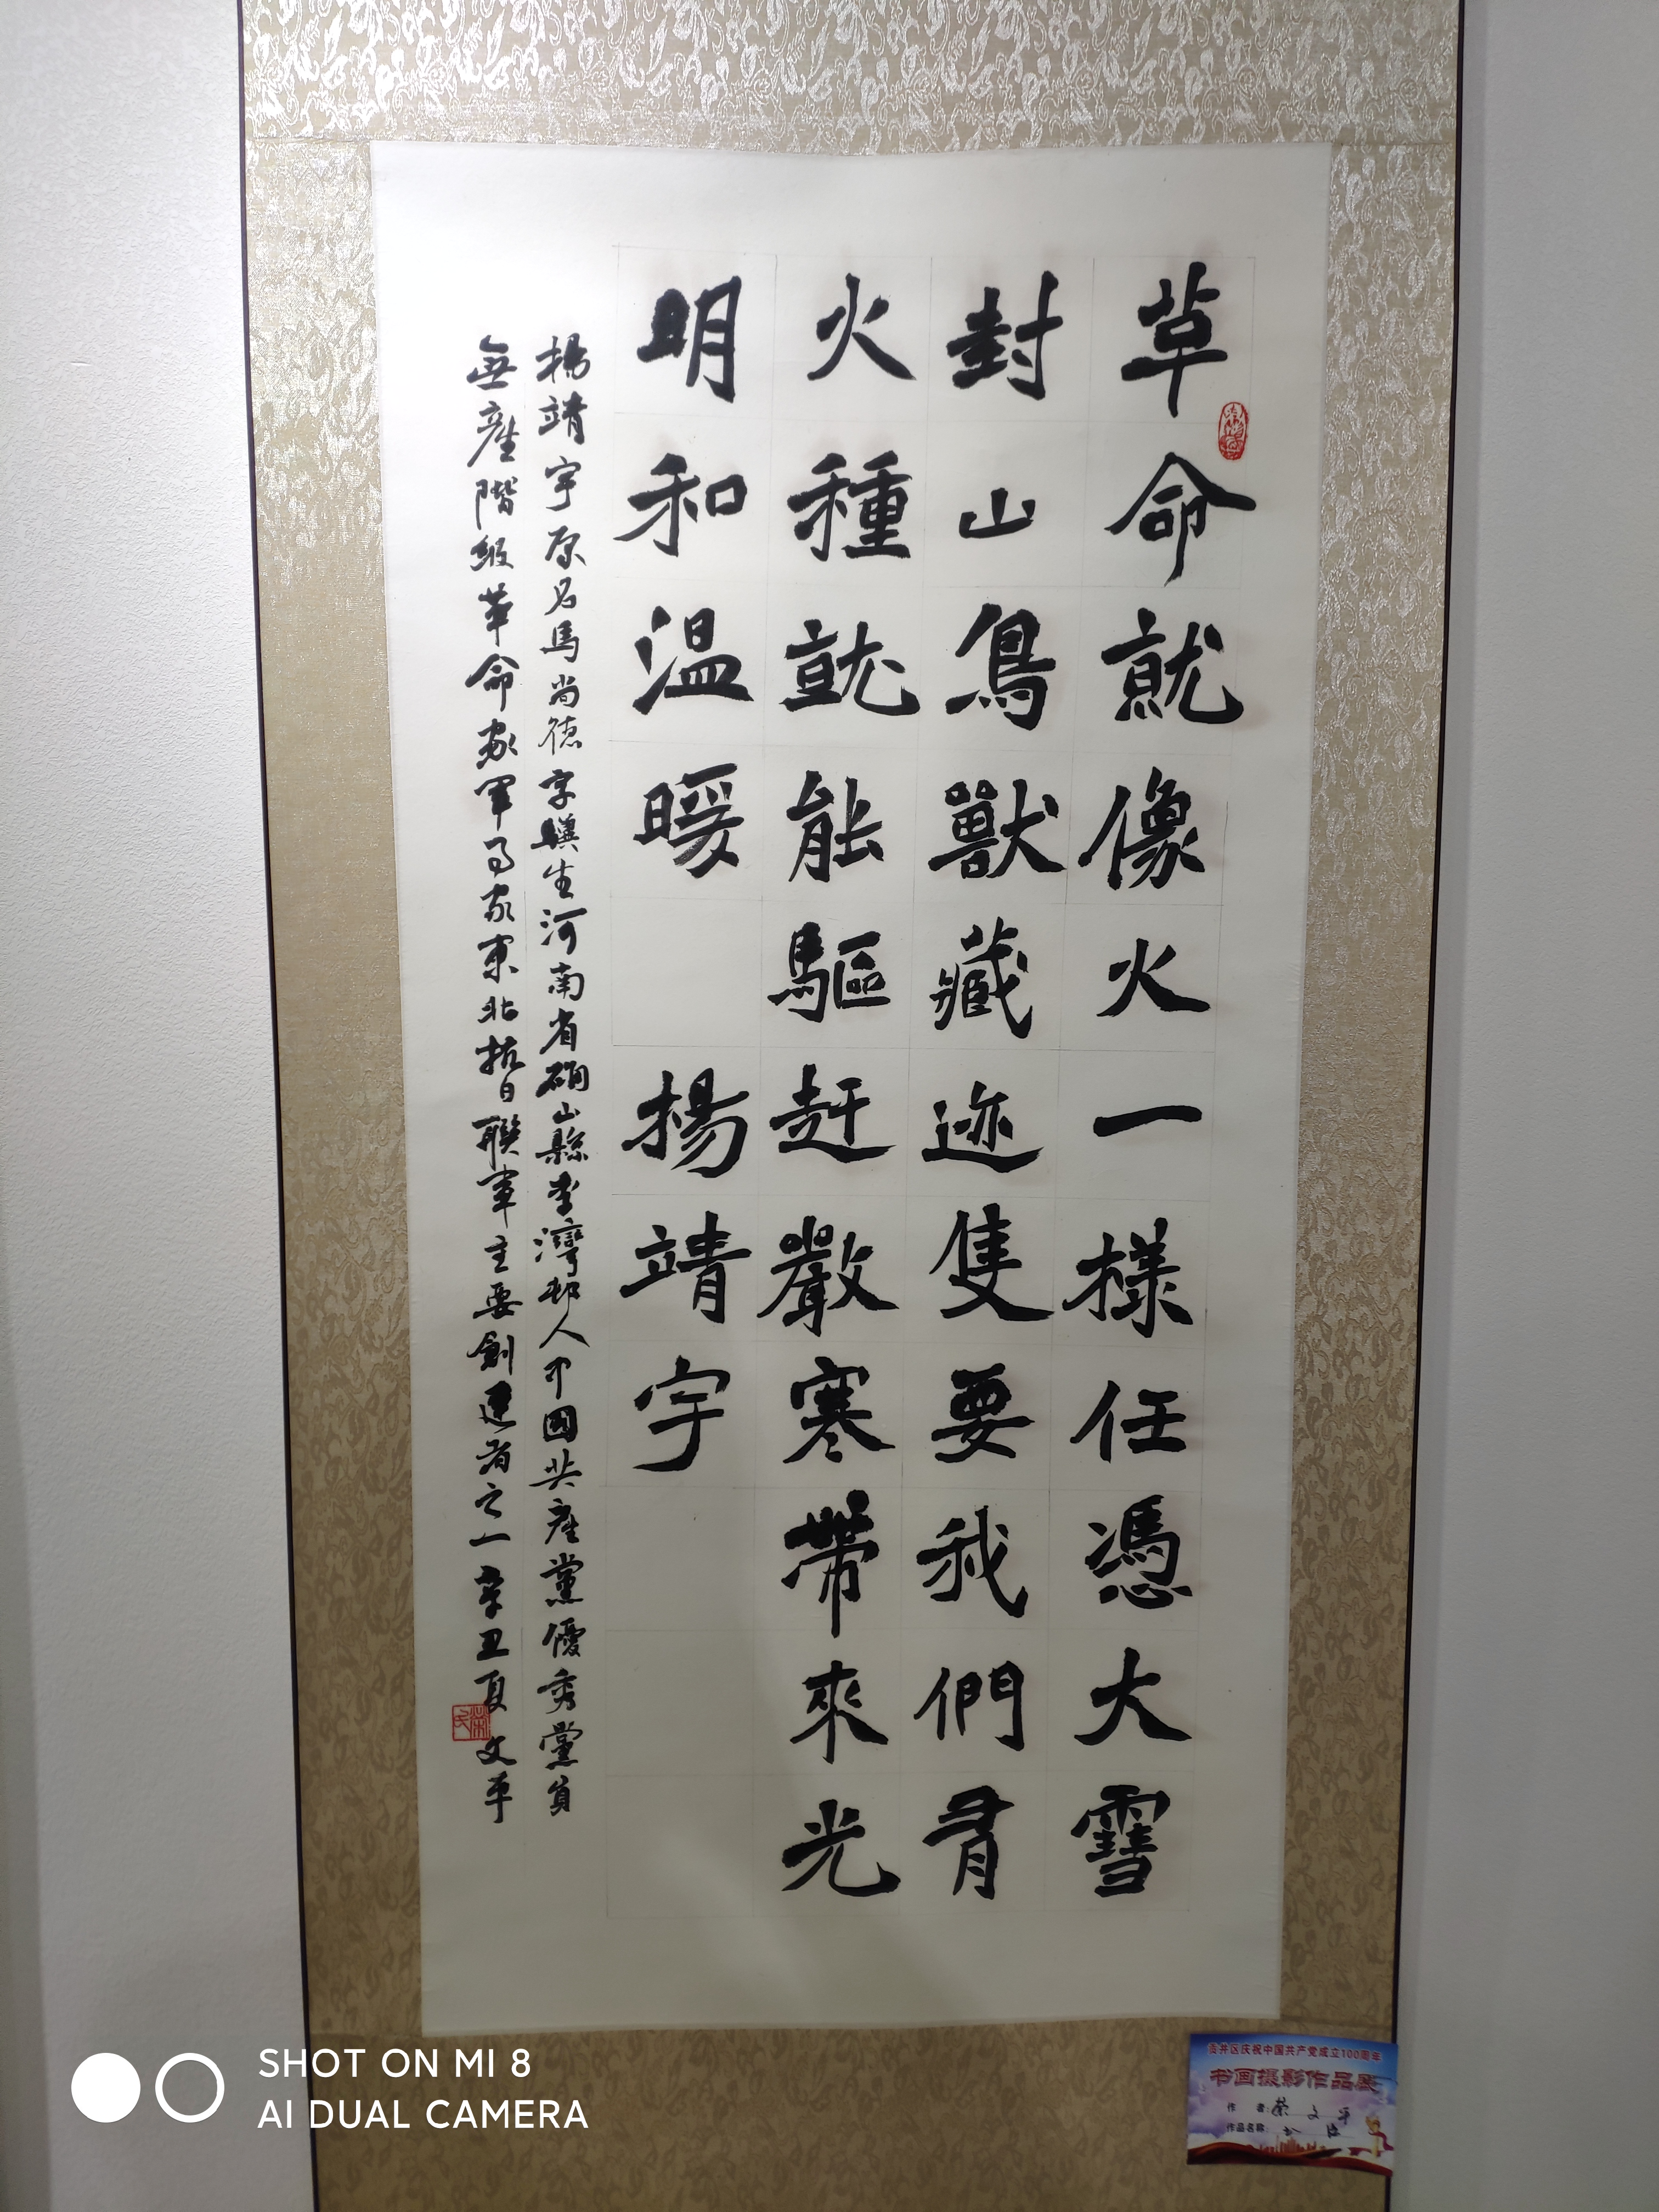 革命就像火一樣任憑大雪
封山鳥獸藏迹隻要我們有
火種就能驅赶嚴寒帶來光
明和温暖 楊靖宇
楊靖宇原名馬尚德字驥生河南省确山縣李灣村人中國共產黨優秀黨員
無產階級革命家軍事家東北抗日聯軍主要創建者之一辛丑夏文平
贡井区庆祝中国共产党成立100周年
书画摄影作品展
作 者:荣文平
作品名称:书法
SHOT ON MI 8
AI DUAL CAMERA